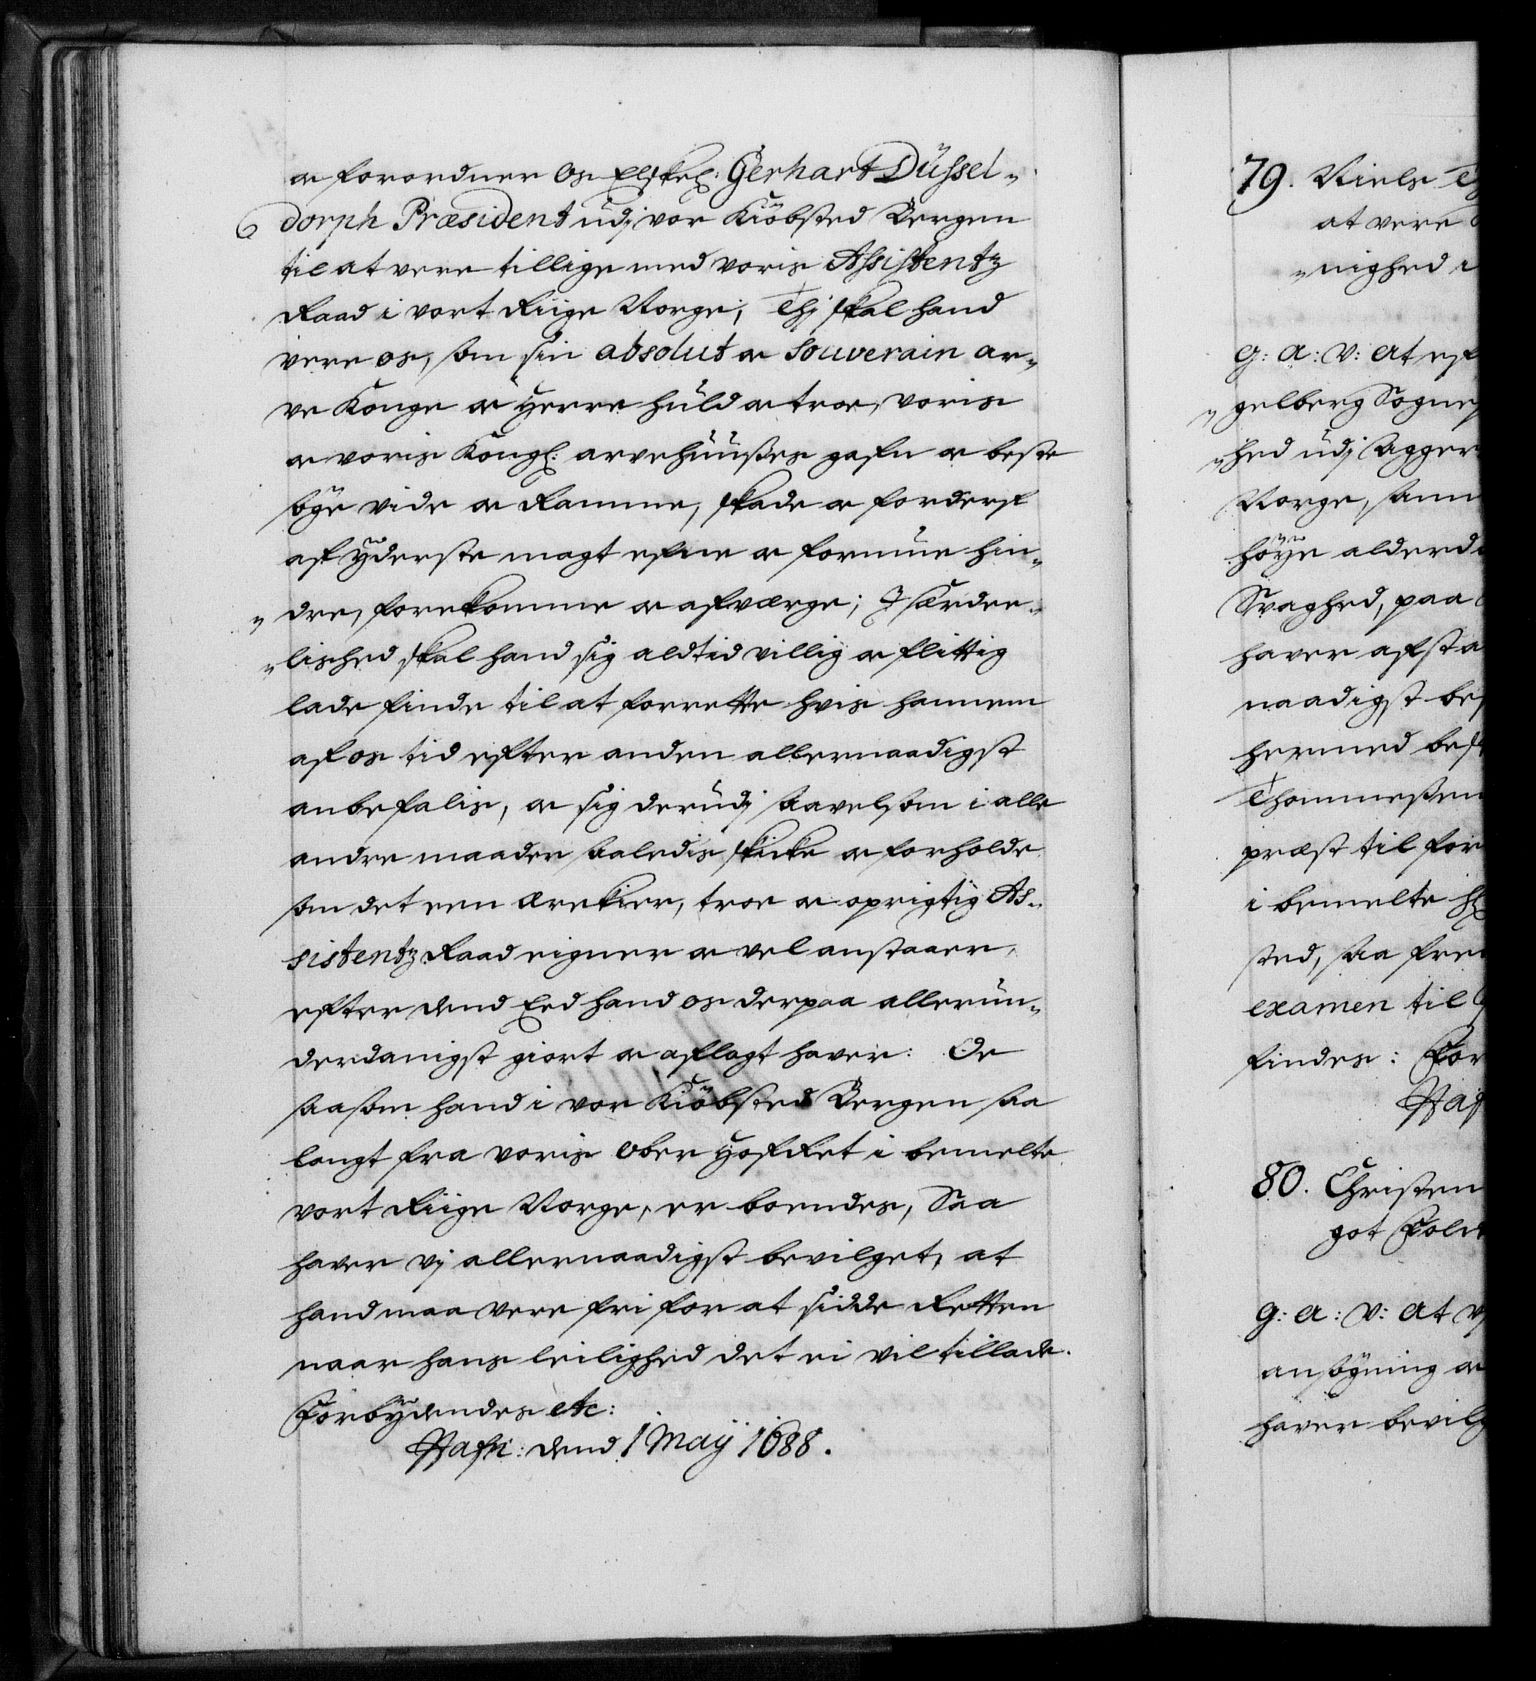 og forordner Os Elskel: Gerhart Düssel-
dorph Præsident udj vor Kiöbsted Bergen
til at vere tillige med voris Assistentz
Raad i vort Riige Norge; Thj skal hand
vere os, som sin absolut og souverain ar-
ve Konge og Herre huld og troe, voris
og voris Kongl: arvehuußes gafn og beste
söge vide og Ramme, skade og forderf
af yderste magt efne og formue hin-
dre, forekomme og afværge; J særdee-
lished skal hand sig altid villig og flittig
lade finde til at forrette hvis hannem
af os tid efter anden allernaadigst
anbefalis, og sig derudj saavelsom i alle
andre maader saaledis skicke og forholde
som det een ærekier, troe og oprigtig As-
sistentz Raad eigner og vel anstaaer,
efter dend Eed hand os derpaa allerun-
derdanigst giort og aflagt haver: Og
saasom hand i vor Kiöbsted Bergen saa
langt fra voris Ober Hof Ret i bemelte
vort Riige Norge, er boendes, Saa
haver vj allernaadigst bevilget, at
hand maa vere fri for at sidde Retten
naar hans leilighed det ei vil tillade.
Forbydendes etc:
Hafn: dend 1 Maÿ 1688.
79. Niels
at vere
-nighed
g: a: v: at ef
gelberg Sogne
-hed udj Agger
Norge, som
höye alderd
Svaghed, paa
haver afsta
naadigst be
hermed be
Thommeßen
præst til for
i bemelte
sted, saa fre
examen til
findes: For
Haf
80. Christen
got Folk
g: a: v: at vj
ansögning og
haver bevilg